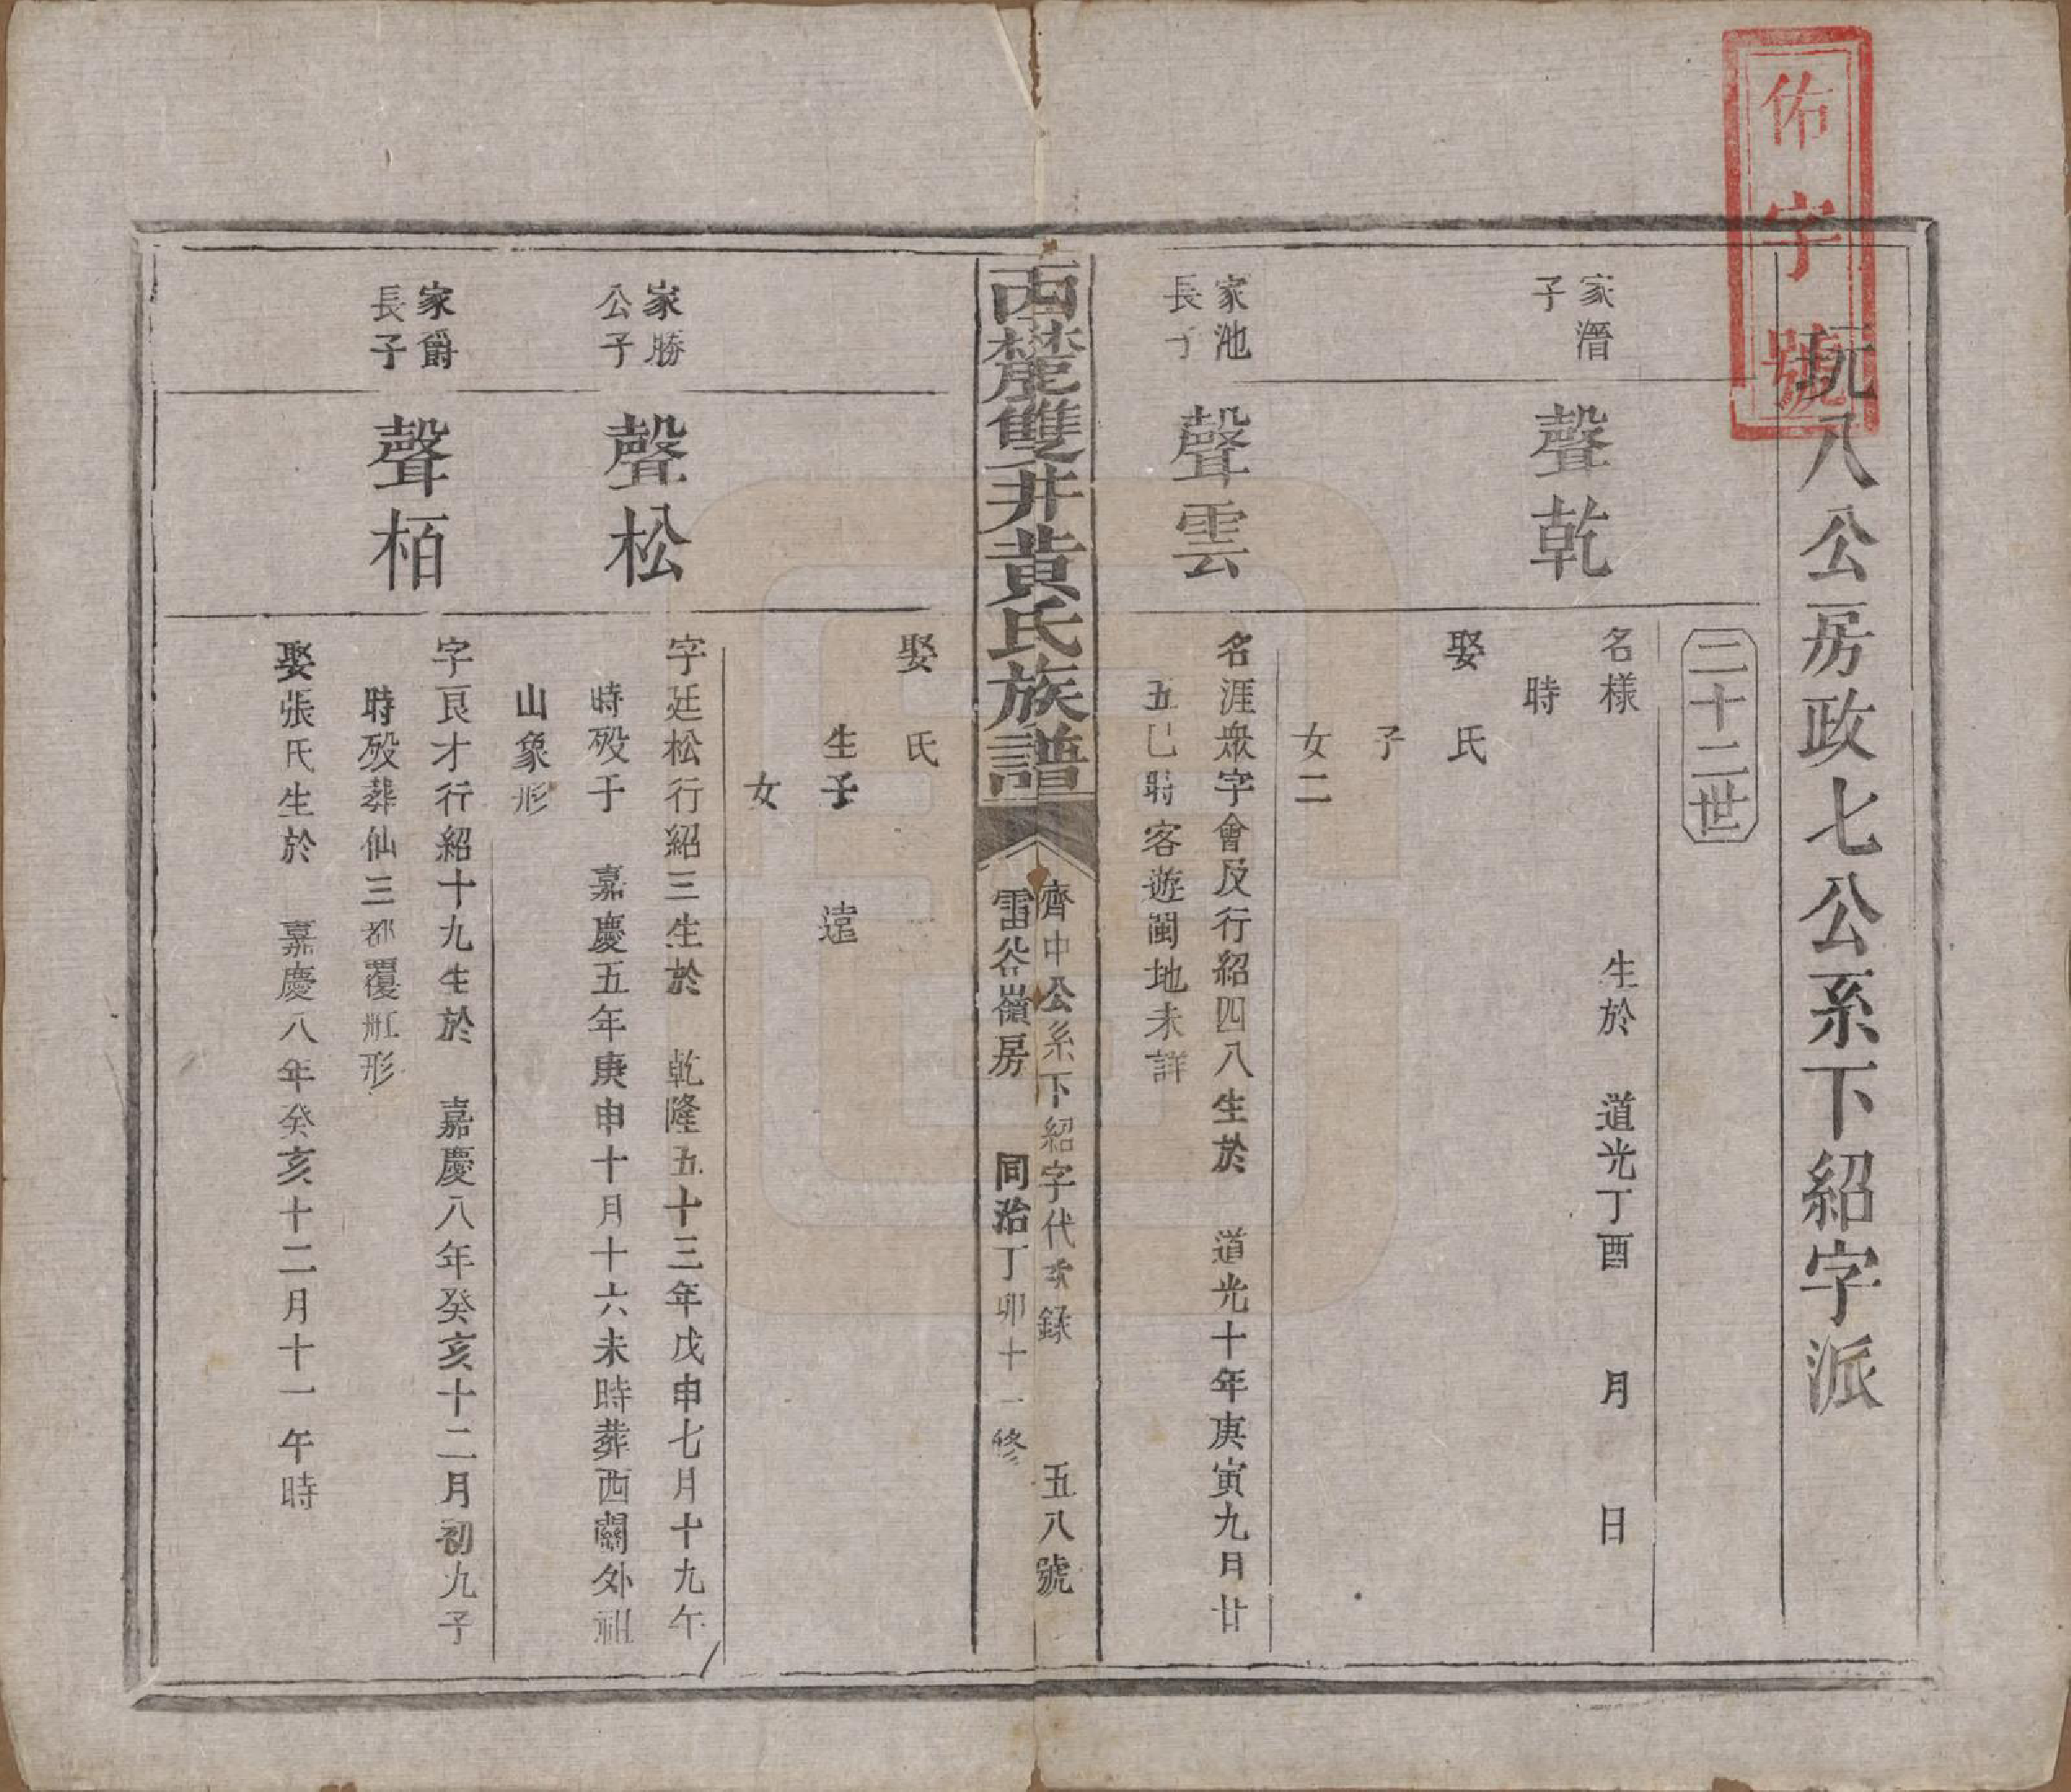 佑字號
玩八公房政七公系下紹字派
二十二世
家潛
子
聲乾
名樣 生於 道光丁酉 月 日
時
娶 氏
子
女二
家池
長子
聲雲
名涯衆字會及行紹四八生於 道光十年庚寅九月廿
五巳時客遊閩地未詳
西麓雙井黃氏族譜
濟中公系下紹字代 錄 五八號
雷谷嶺房 同治丁卯十一修
娶 氏
生子 遠
女
家勝
公子
聲松
字廷松行紹三生於 乾隆五十三年戊申七月十九午
時殁于 嘉慶五年庚申十月十六未時葬西關外祖
山象形
家爵
長子
聲栢
字良才行紹十九生於 嘉慶八年癸亥十二月初九子
時殁葬仙三都覆缸形
娶張氏生於 嘉慶八年癸亥十二月十一午時